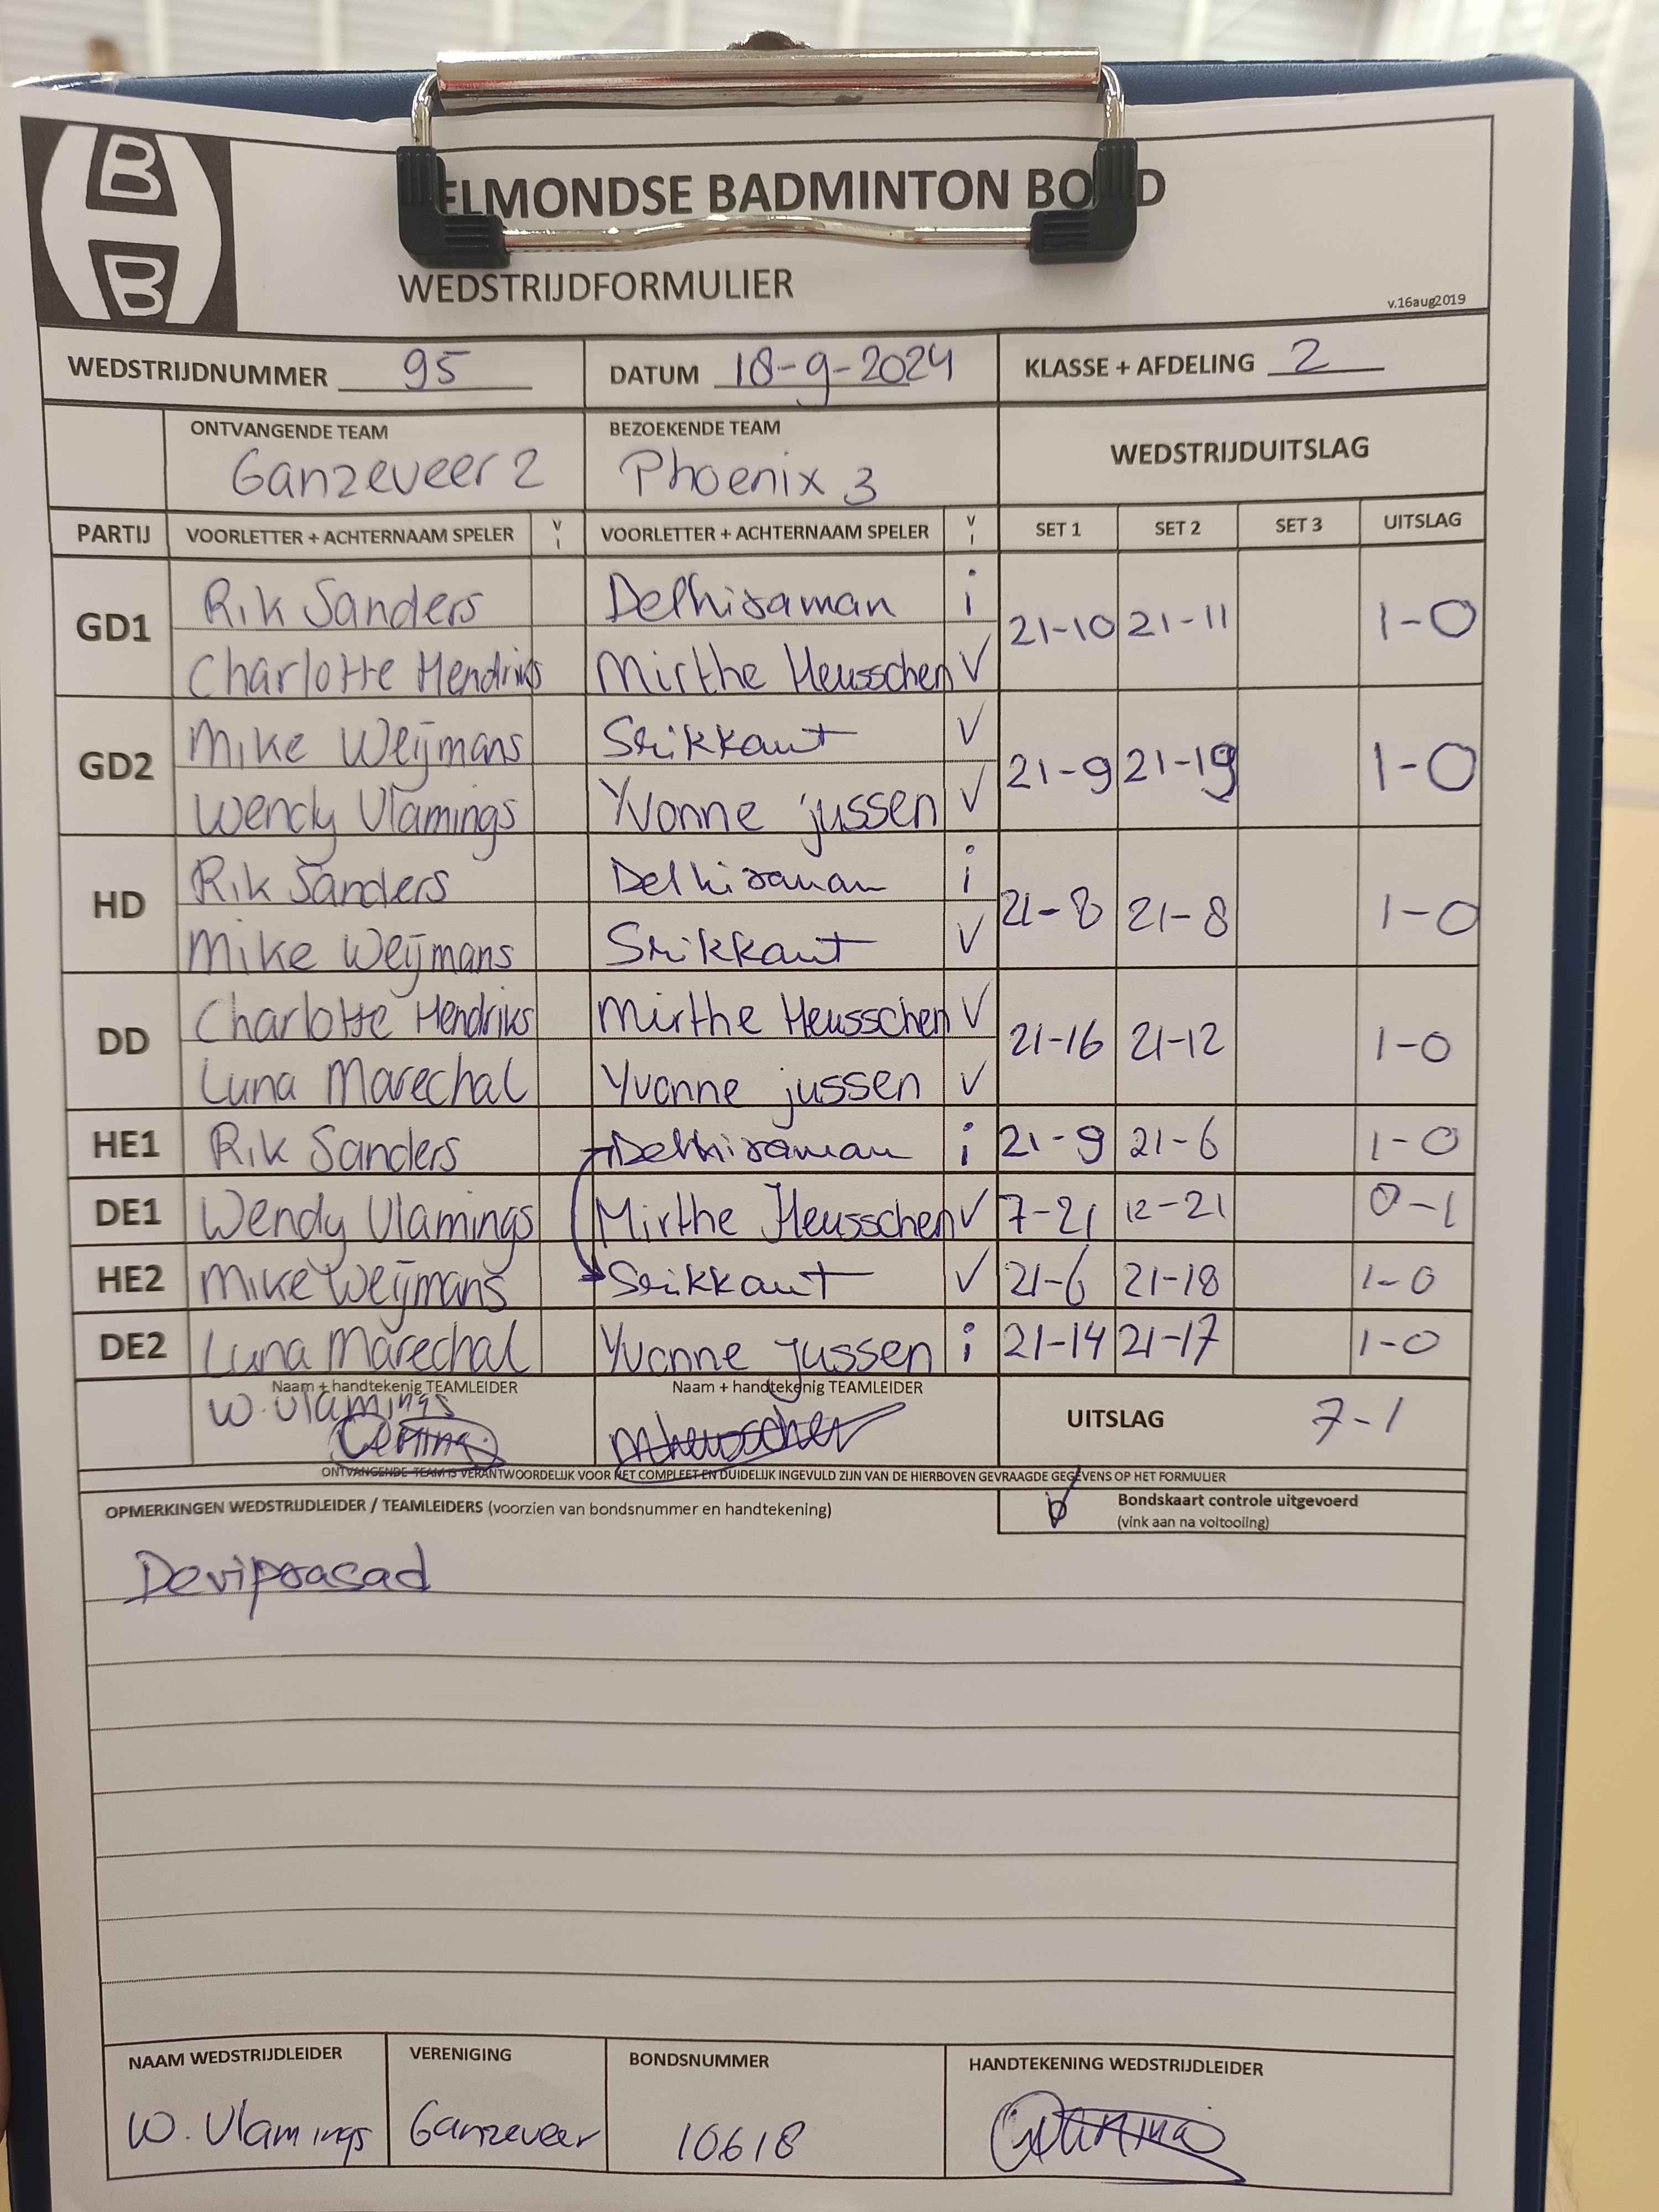 B
B
ELMONDSE BADMINTON BO D
WEDSTRIJDFORMULIER
v.16aug2019
WEDSTRIJDNUMMER 95 DATUM 18-9-2024 KLASSE + AFDELING 2
ONTVANGENDE TEAM BEZOEKENDE TEAM WEDSTRIJDUITSLAG
Ganzeveer 2 Phoenix 3
PARTIJ VOORLETTER + ACHTERNAAM SPELER V I VOORLETTER + ACHTERNAAM SPELER V I SET 1 SET 2 SET 3 UITSLAG
GD1 Rik Sanders Delhiraman i 21-10 21-11 1-0
Charlotte Hendriks Mirthe Heusschen V
GD2 Mike Weijmans Srikkant V 21-9 21-19 1-0
Wendy Vlamings Yvonne jussen V
HD Rik Sanders Delhiraman i 21-8 21-8 1-0
Mike Weijmans Srikkant V
DD Charlotte Hendriks Mirthe Heusschen V 21-16 21-12 1-0
Luna Marechal Yvonne jussen V
HE1 Rik Sanders Delhiraman i 21-9 21-6 1-0
DE1 Wendy Vlamings Mirthe Heusschen V 7-21 12-21 0-1
HE2 Mike Weijmans Srikkant V 21-6 21-18 1-0
DE2 Luna Marechal Yvonne jussen i 21-14 21-17 1-0
Naam + handtekenig TEAMLEIDER Naam + handtekenig TEAMLEIDER UITSLAG 7-1
W. Vlamings
mheusschen
ONTVANGENDE TEAM IS VERANTWOORDELIJK VOOR HET COMPLEET EN DUIDELIJK INGEVULD ZIJN VAN DE HIERBOVEN GEVRAAGDE GEGEVENS OP HET FORMULIER
OPMERKINGEN WEDSTRIJDLEIDER / TEAMLEIDERS (voorzien van bondsnummer en handtekening) Bondskaart controle uitgevoerd
(vink aan na voltooiing)
Deviprasad
NAAM WEDSTRIJDLEIDER VERENIGING BONDSNUMMER HANDTEKENING WEDSTRIJDLEIDER
W. Vlamings Ganzeveer 10618